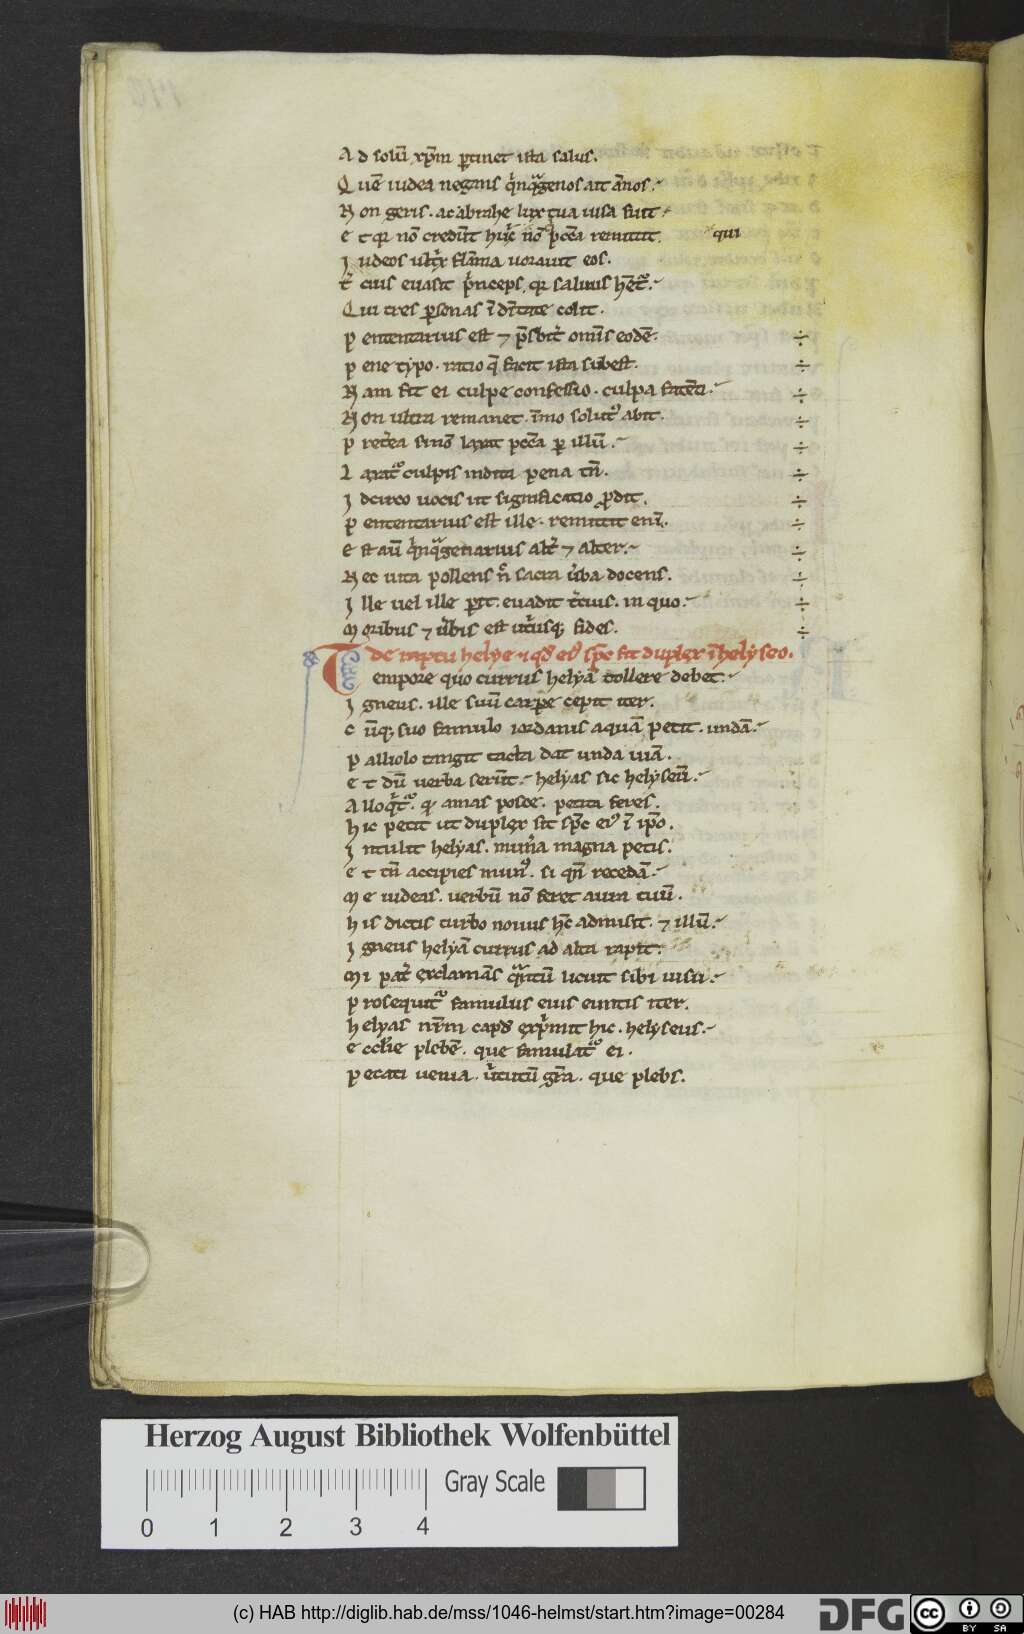 A d solũ xp̃m ꝑtinet ista salus.
Q uẽ iudea negans q̃nq̃genos ait ãnos.
N on geris. ac abrahe lux tua uisa fuit.
e t qꝛ nõ credũt huic nõ pctã remittit. qui
I udeos ultꝛ flãma uorauit eos.
t̃ cius euasit p̃nceps. qꝛ saluus h̃et.
Q ui tres ꝑsonas ĩ dĩtate colit.
p enitentiarius est ⁊ p̃sbit̃ om̃is eodẽ. ÷
p ene typo. ratio q̃ facit ista subest. ÷
N am fit ei culpe confessio. culpa fatẽti. ÷
N on ultra remanet. ĩmo solut᷒ abit. ÷
p ret̃ea sinõ laxat pctã ꝑ illũ. ÷
L axat᷒ culpis indita pena tñ. ÷
I dcirco uocis ut significatio ꝓdit. ÷
p enitentiarius est ille. remittit eni. ÷
e st aũ q̃nq̃genarius alt̃ ⁊ alter. ÷
N ec uita pollens ñ sacra ũba docens. ÷
I lle uel ille ꝑit. euadit t̃cius. in quo. ÷
M oribus ⁊ ũbis est ut̃usq; fides. ÷
de raptu helye ⁊ qđ ei᷒ sp̃c fit duplex ĩ helyseo.
T empore quo currus helyã tollere debet.
I gneus. ille suũ carpe cepit iter.
c ũq; suo famulo iordanis aquã petit. undã.
p alliolo tangit tacta dat unda uiã.
e t dũ uerba serũt. helyas sic helyseũ.
A lloq̃t᷒. qꝛ amas posce. petita feres.
h ic petit ut duplex sit sp̃c ei᷒ ĩ ip̃o.
I ntulit helyas. mun̄a magna petis.
e t tñ accipies mun᷒. si qñ recedã.
M e uideas. uerbũ nõ feret aura tuũ.
h is dictis turbo nouus h̃c admisit. ⁊ illũ.
I gneus helyã currus ad alta rapit.
M i pat̃ exclamãs q̃ntũ licuit sibi uisu.
p rosequit᷒ famulus eius euntis iter.
h elyas nr̃m capđ exp̃mit hic. helyseus.
e ccl̃ie plebẽ. que famulat᷒ ei.
p ecati uenia. ũtutũ gr̃a. que plebs.
Herzog August Bibliothek Wolfenbüttel
0 1 2 3 4 Gray Scale
(c) HAB http://diglib.hab.de/mss/1046-helmst/start.htm?image=00284
DFG cc BY SA